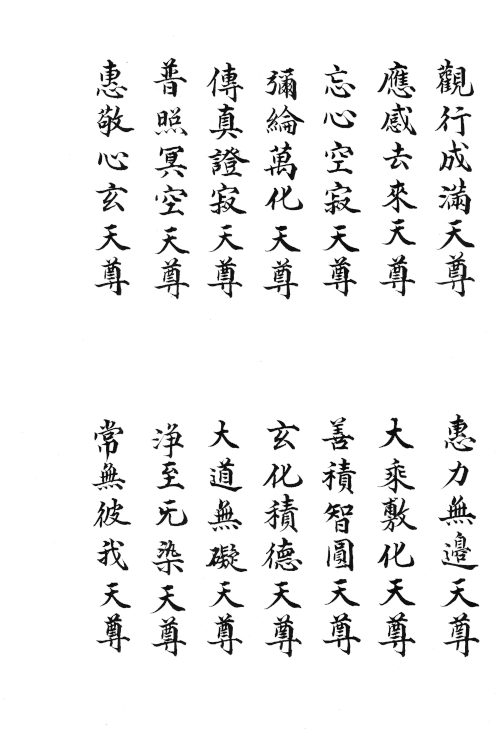 觀行成滿天尊
應感去來天尊
忘心空寂天尊
彌綸萬化天尊
傳真證寂天尊
普照冥空天尊
惠敬心玄天尊
惠力無邊天尊
大乘敷化天尊
善積智圓天尊
玄化積德天尊
大道無礙天尊
淨至无染天尊
常無彼我天尊